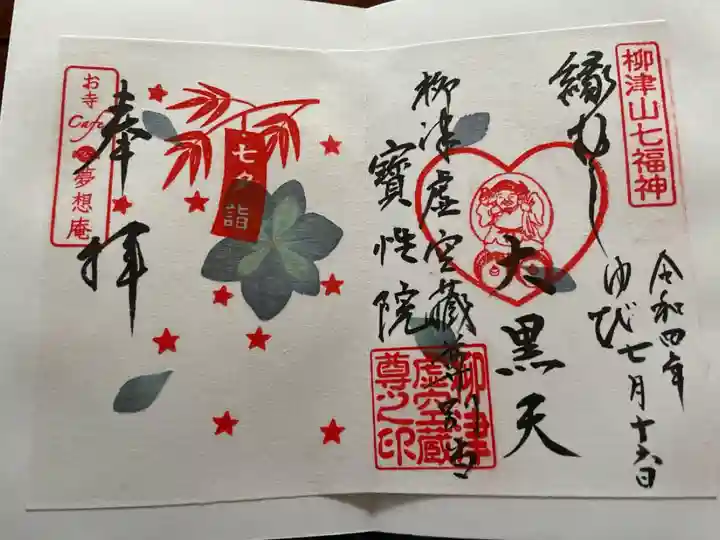 柳津山七福神
令和四年
七月十六日
縁むすび
大黒天
柳津虚空蔵尊別当
寳性院
柳津
虚空蔵
尊之印
七夕詣
奉拝
お寺Cafe夢想庵